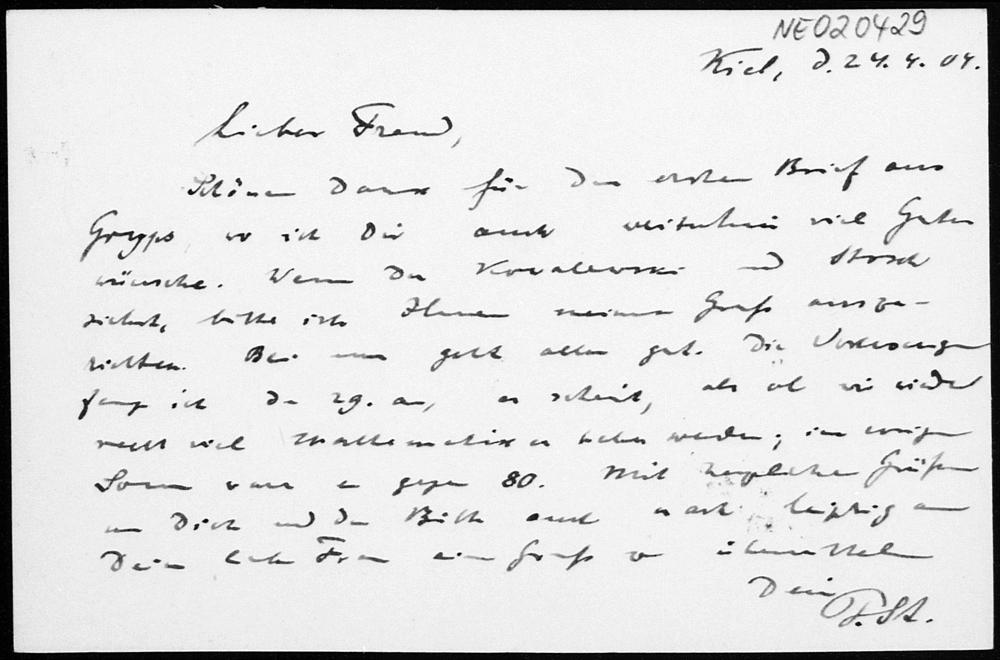 NE020429
Kiel, d. 24. 4. 04.
Lieber Freund,
Schönen Dank für den ersten Brief aus
Gryps, wo ich Dir auch weiterhin viel Gutes
wünsche. Wenn Du Kowalewski und Stosch
siehst, bitte ich Ihnen meinen Gruß auszu-
richten. Bei uns geht alles gut. Die Vorlesungen
fange ich den 29. an, es scheint, als ob wir wieder
recht viel Mathematiker haben werden; im vorigen
Som waren es gegen 80. Mit herzlichen Grüßen
an Dich und der Bitte auch nach Leipzig an
Deine liebe Frau einen Gruß zu übermitteln
Dein
P. St.